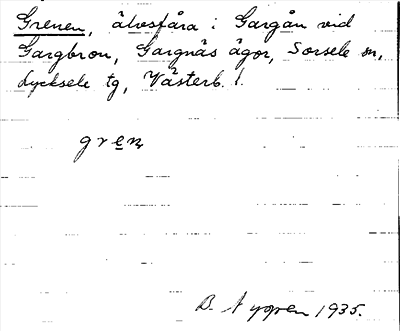 Grenen, älvsfåra i Gargån vid
Gargbron, Gargnäs ägor, Sorsele sn,
Lycksele tg, Västerb. l.
gren
B. Nygren 1935.